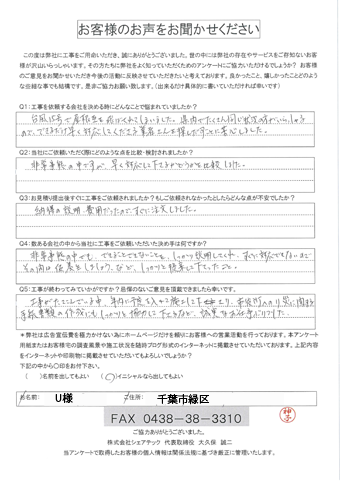 お客様のお声をお聞かせください
この度は弊社に工事をご用命いただき、誠にありがとうございました。世の中には弊社の存在やサービスをご存知ないお客様が
が沢山いらっしゃいます。その方たちに弊社をよく知っていただくためのアンケートにご協力いただけるでしょうか? お客様
のご意見をお聞かせいただき今後の活動に反映させていきたいと考えております。良かったこと、嬉しかったことどのよう
な些細な事でも結構です、是非ご協力お願い致します。(出来るだけ具体的に書いていただければ幸いです)
Q1:工事を依頼する会社を決める時にどんなことで悩まれていましたか?
台風15号で屋根瓦を
ので、できるだけ早く対応してくださる業者さんを探しだすことに苦心しました。
Q2:当社にご依頼いただく際にどのような点を比較・検討されましたか?
非常事態の中ですが、早く対応して下さるかどうかを比較しました。
Q3:お見積り提出後すぐに工事をご依頼されましたか?もしご依頼されなかったとしたらどんな点が不安でしたか?
納得の説明、費用だったので、すぐに注文しました。
Q4:数ある会社の中から当社に工事をご依頼いただいた決め手は何ですか?
非常事態の中でも、できることできないことを、しっかり説明してくれ、すぐに対応できないまで
その間は仮養生をしましょう、など、しっかりと提案して下さった。
Q5:工事が終わってみていかがですか?担保のないご意見を頂戴できましたら幸いです。
工事がたてこんでいる中、年内に
手続書類の作成にもしっかりと協力して下さるなど、
*弊社は広告宣伝費を極力かけない為にホームページだけを頼りにお客様への営業活動を行っております。本アンケート
用紙またはお客様宅の調査風景や施工状況を随時ブログ形式のインターネットに掲載させていただいております。上記内容
をインターネットや印刷物に掲載させていただいてもよろしいでしょうか?
下記の中から○印をお付下さい。
( )名前を出してもよい (○)イニシャルなら出してもよい
お名前: U様 ご住所: 千葉市緑区
FAX 0438-38-3310
ご協力ありがとうございました。
株式会社シェアテック 代表取締役 大久保 誠二
当アンケートで取得したお客様の個人情報は関係法規に基づき厳正に管理いたします。